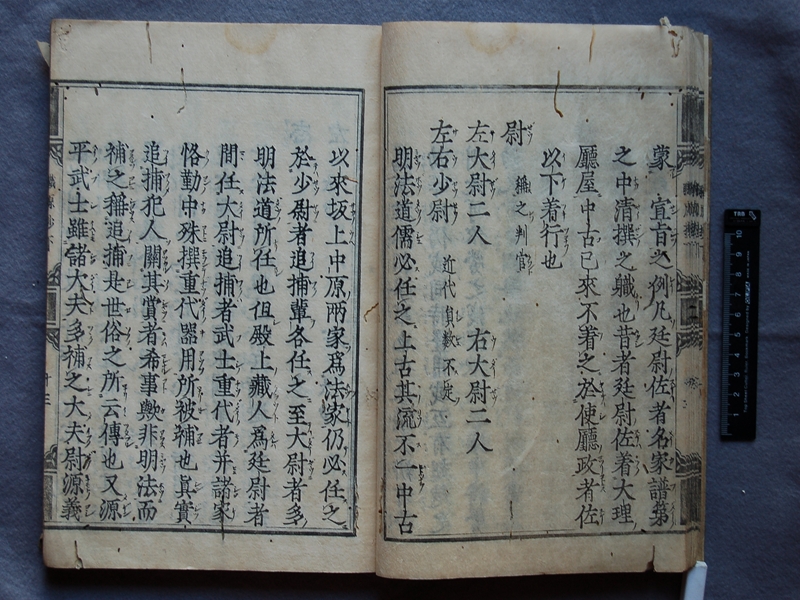 蒙 宣旨之例凡廷尉佐者名家譜第
之中清撰之職也昔者廷尉佐着大理
廳屋中古已來不着之於使廳政者佐
以下着行也
尉 稱之判官
左大尉二人 右大尉二人
左右少尉 近代員數不定
明法道儒必任之上古其流不一中古
以來坂上中原兩家爲法家仍必任之
於少尉者追捕輩各任之至大尉者多
明法道所任也但殿上藏人爲廷尉者
間任大尉追捕者武士重代者并諸家
恪勤中殊撰重代器用所被補也眞實
追捕犯人關其賞者希事歟非明法而
補之稱追捕是世俗之所云傳也又源
平武士雖諸大夫多補之大夫尉源義